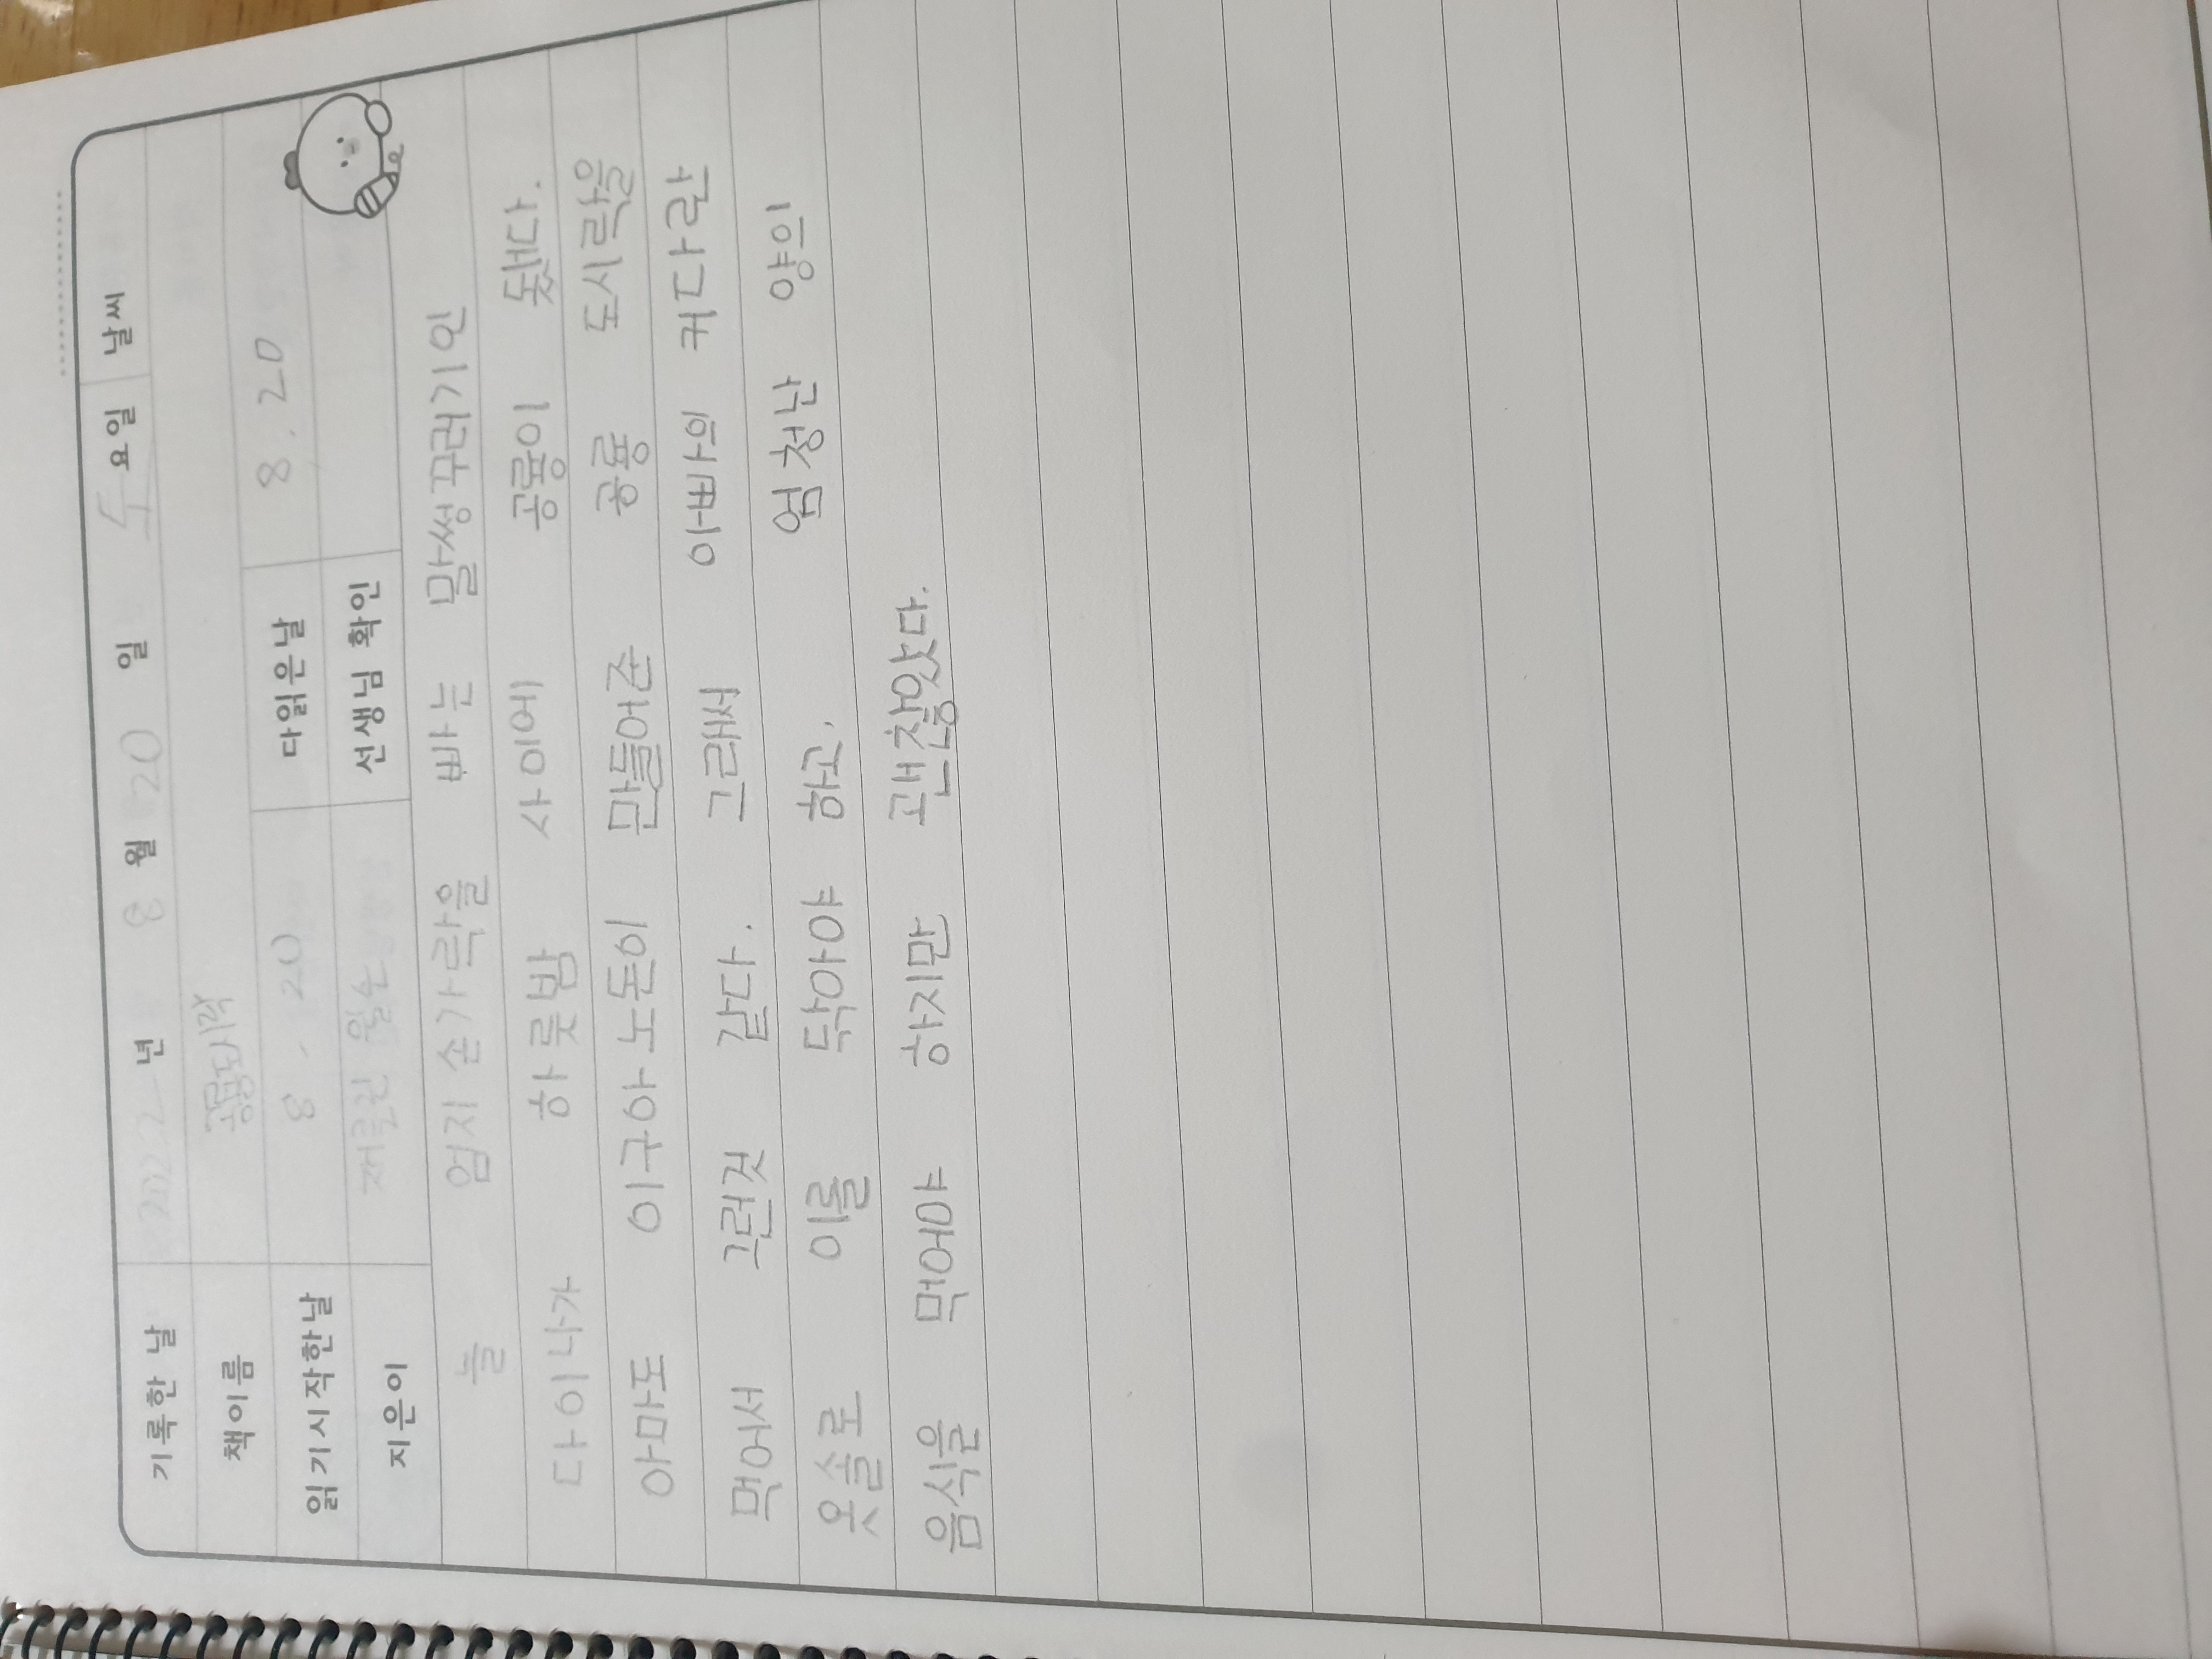 기록한 날 2022 년 8 월 20 일 요일 날씨
책이름 공룡도시락
읽기시작한날 8. 20 다읽은날 8. 20
지은이 재클린 윌슨 선생님 확인
늘 엄지 손가락을 빠는 말썽꾸러기인
다이나가 하룻밤 사이에 공룡이 됐다.
아마도 이구아노돈이 만들어준 공룡 도시락을
먹어서 그런것 같다. 그래서 아빠의 커다란
옷솔로 이를 닦아야 하고, 엄청난 양의
음식을 먹어야 하지만 괜찮았다.